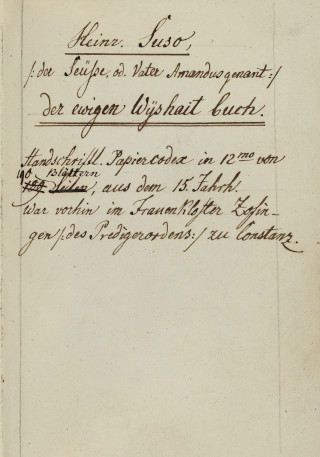 Heinr. Suso,
/: der Seüsse, od. Vater Amandus genant :/
der ewigen Wÿshait buch.
Handschriftl. Papiercodex in 12mo von
190 Blättern
Seiten, aus dem 15. Jahrh.
War vorhin im Frauenkloster Zofin-
gen /: des Predigerordens :/ zu Constanz.